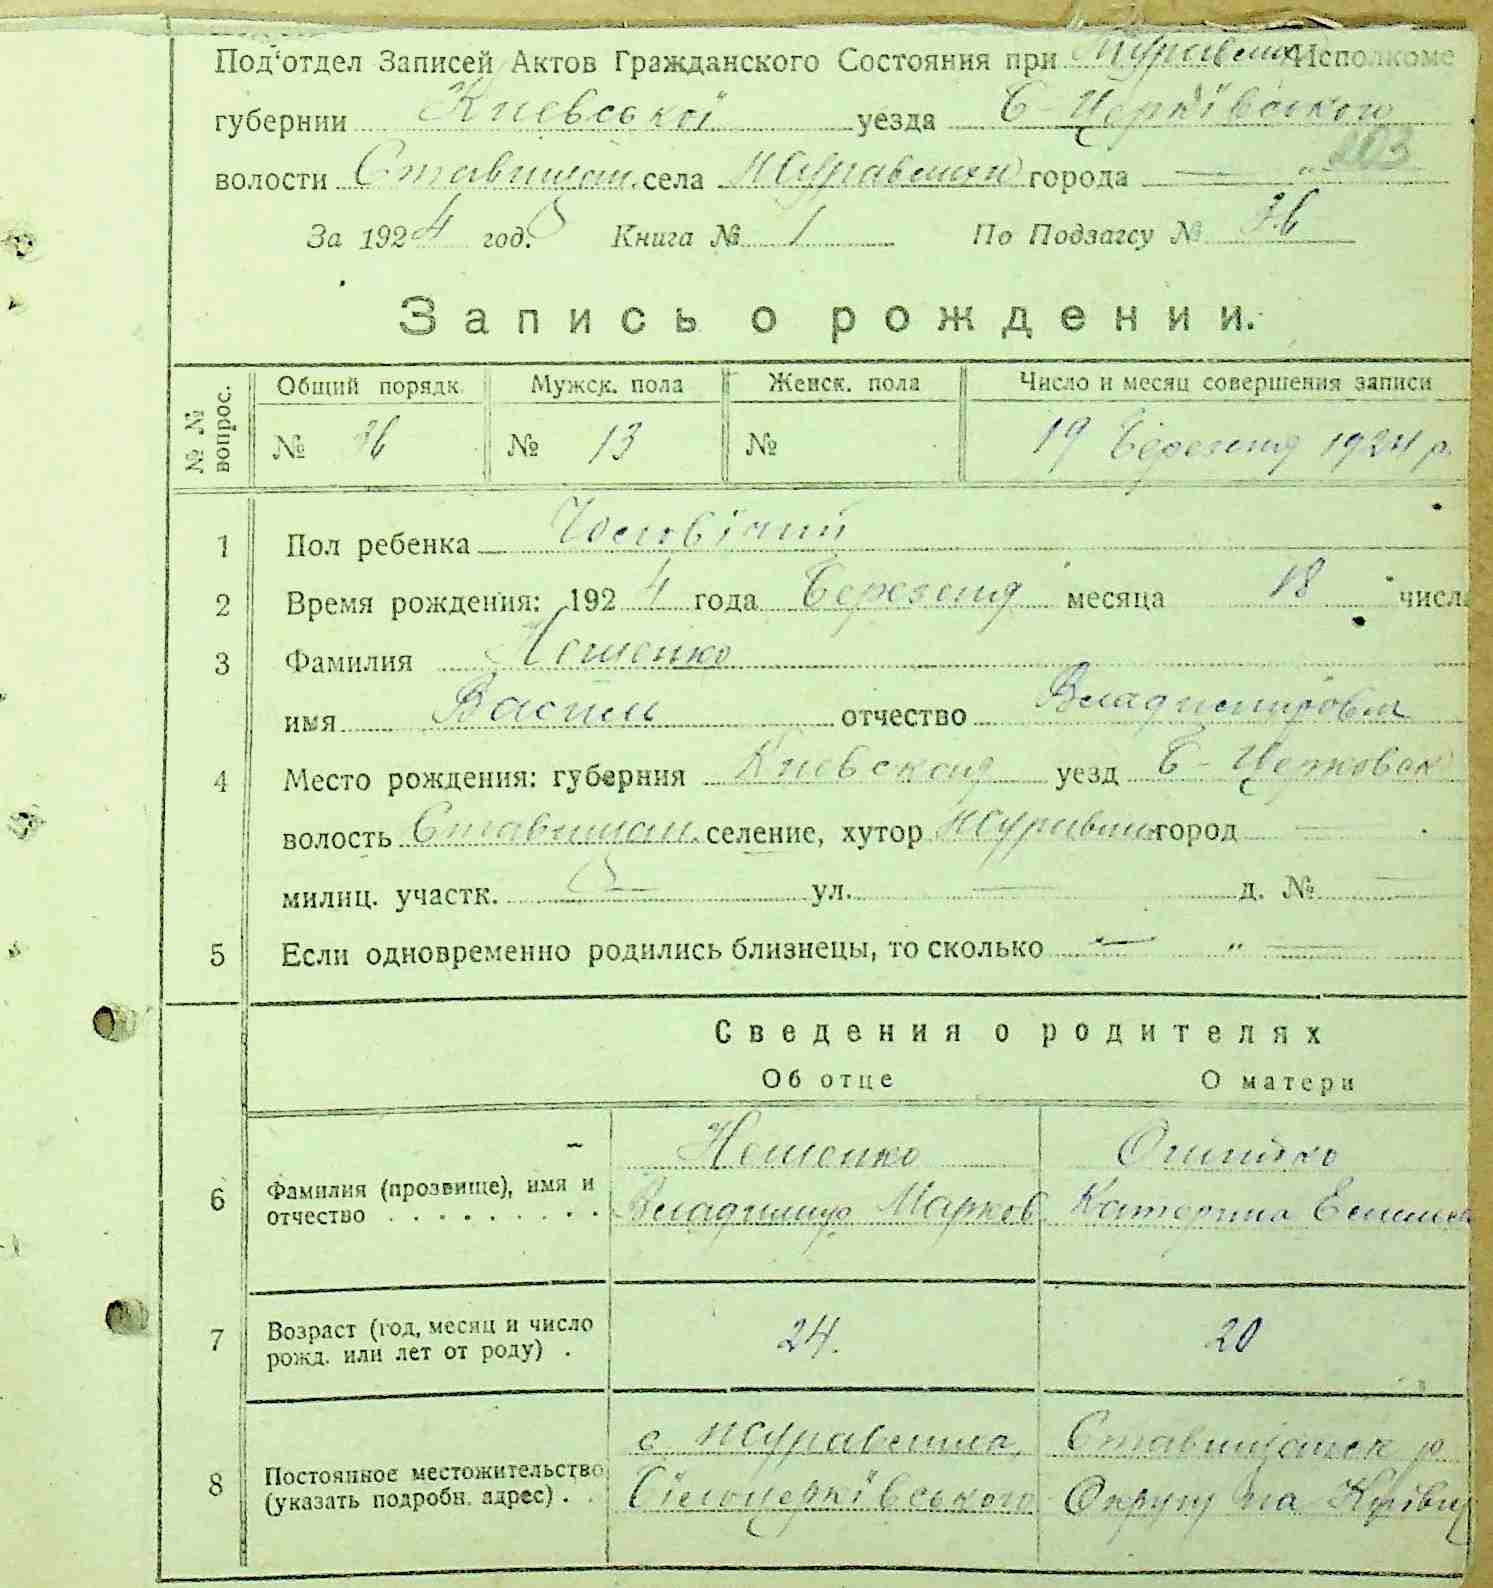 Под'отдел Записей Актов Гражданского Состояния при Журавлих Исполкоме
губернии Киевської уезда Б-Церківського
203
волости Ставищан. села Журавлихи города —
За 1924 год. Книга № 1 По Подзагсу № 36
Запись о рождении.
№ № вопрос. Общий порядк. Мужск. пола Женск. пола Число и месяц совершения записи
№ 36 № 13 № 19 Березня 1924 р.
1 Пол ребенка Чоловічий
2 Время рождения: 1924 года Березня месяца 18 числа
3 Фамилия Нешенко
имя Васили отчество Владимирович
4 Место рождения: губерния Киевская уезд Б-Церковск
волость Ставищан. селение, хутор Журавлих город —
милиц. участк. — ул. — д. № —
5 Если одновременно родились близнецы, то сколько — " —
Сведения о родителях
Об отце О матери
6 Фамилия (прозвище), имя и отчество Нешенко Владимир Марков
Катерина
7 Возраст (год, месяц и число рожд. или лет от роду) . 24. 20
8 Постоянное местожительство (указать подробн. адрес) . . с Журавлиха, Ставищанск р.
Білоцерківського Округу на Київщ